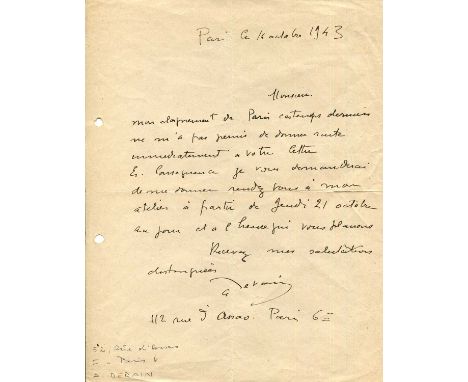 Paris le 14 octobre 1943
Monsieur.
mon eloignement de Paris ces temps derniers
ne m'a pas permis de donner suite
immediatement a votre lettre
En Consequence je vous demanderai
de me donner rendez vous à mon
atelier à partir de Jeudi 21 octobre
au jour et a l heure qui vous plairons
Recevez mes salutations
distinguées
a Derain
112 rue d'Assas. Paris 6E
Paris
A. DERAIN